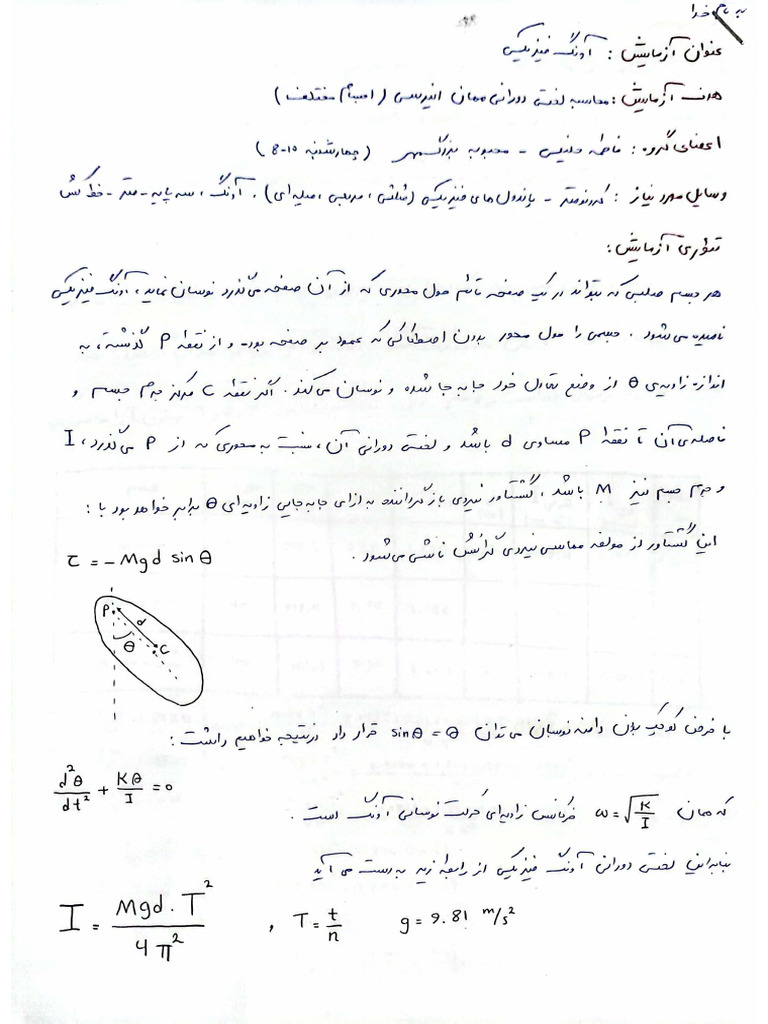 به نام خدا
عنوان آزمایش : آونگ فیزیکی
هدف آزمایش : محاسبه لختی دورانی ممان اینرسی ( اجسام مختلف )
اعضای گروه : فاطمه - محبوبه بزرگمهر ( چهارشنبه 10-8 )
وسایل مورد نیاز : کرونومتر - پاندول های فیزیکی ( مثلثی ، مربعی ، میله ای ) ، آونگ ، سه پایه - متر - خط کش
تئوری آزمایش :
هر جسم صلبی که بتواند در یک صفحه قائم حول محوری که از آن صفحه می‌گذرد نوسان نماید ، آونگ فیزیکی
نامیده می‌شود . جسمی را حول محور بدون اصطکاکی که عمود بر صفحه بوده و از نقطه P گذشته ، به
اندازه زاویه‌ی θ از وضع تعادل خود جابه جا شده و نوسان می کند . اگر نقطه C مرکز جرم جسم و
فاصله‌ی آن تا نقطه P مساوی d باشد و لختی دورانی آن ، نسبت به محوری که از P می‌گذرد ، I
و جرم جسم نیز M باشد ، گشتاور نیروی بازگرداننده به ازای جابه جایی زاویه ای θ برابر خواهد بود با :
این گشتاور از مولفه مماسی نیروی گرانش ناشی می شود .
τ = -Mgd sin θ
P
d
θ
C
با فرض کوچک بودن دامنه نوسان می توان sinθ = θ قرار داد در نتیجه خواهیم داشت :
d²θ/dt² + Kθ/I = 0
که همان ω = √(K/I) فرکانس زاویه ای حرکت نوسانی آونگ است .
بنابراین لختی دورانی آونگ فیزیکی از رابطه زیر به دست می آید
I = Mgd . T²/4π² , T = t/n g = 9.81 m/s²